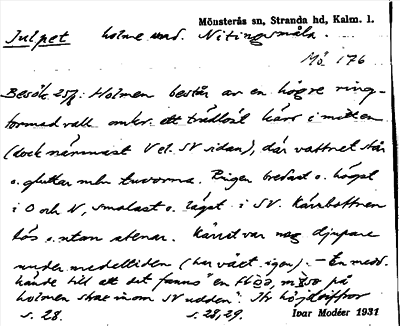 Mönsterås sn, Stranda hd, Kalm. l.
Julpet holme und. Nitingsmåla.
Mö 176
Besök 25/7: Holmen består av en högre ring-
formad vall omkr. ett trädlöst kärr i mitten
(dock närmast V el. SV sidan), där vattnet står
o. gluttar mln tuvorna. Ringen bredast o. högst
i O och N, smalast o. lägst i SV. Kärrbottnen
lös o. utan stenar. Kärret var nog djupare
under medeltiden (har växt igen). - En
hände till att det fanns "en på
holmen strax inom SV udden". Str höjdsiffror
s. 28. s. 28, 29. Ivar Modéer 1931